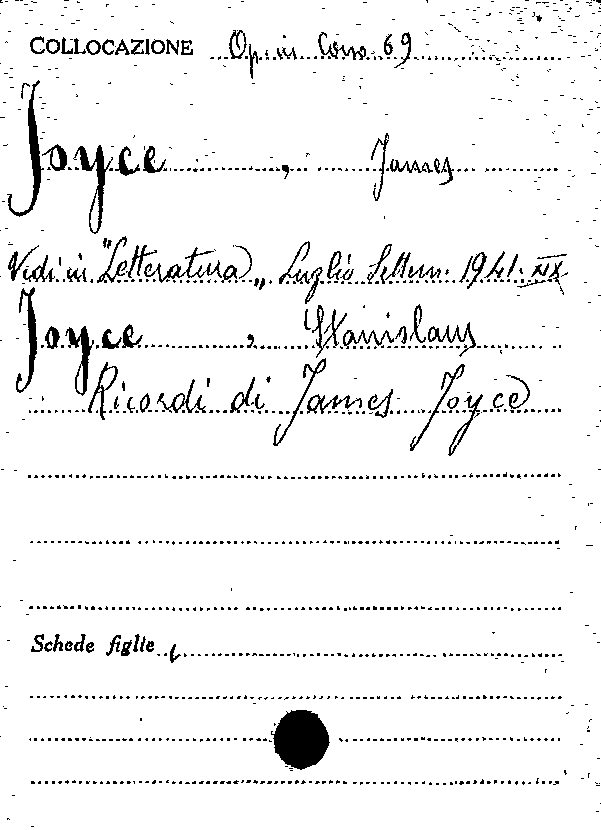 COLLOCAZIONE Op. in Corso 69
Joyce, James
Vedi in "Letteratura„ Luglio Settem. 1941. XIX
Joyce, Stanislaus
Ricordi di James Joyce
Schede figlie